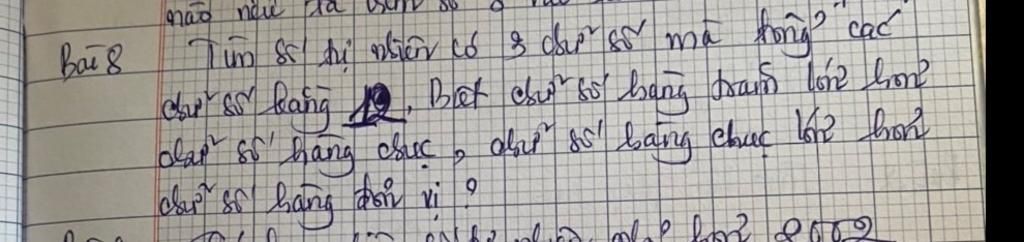 Bài 8 Tìm số tự nhiên có 3 chữ số mà tổng các
chữ số bằng 12. Biết chữ số hàng trăm lớn hơn
chữ số hàng chục, chữ số hàng chục lớn hơn
chữ số hàng đơn vị?